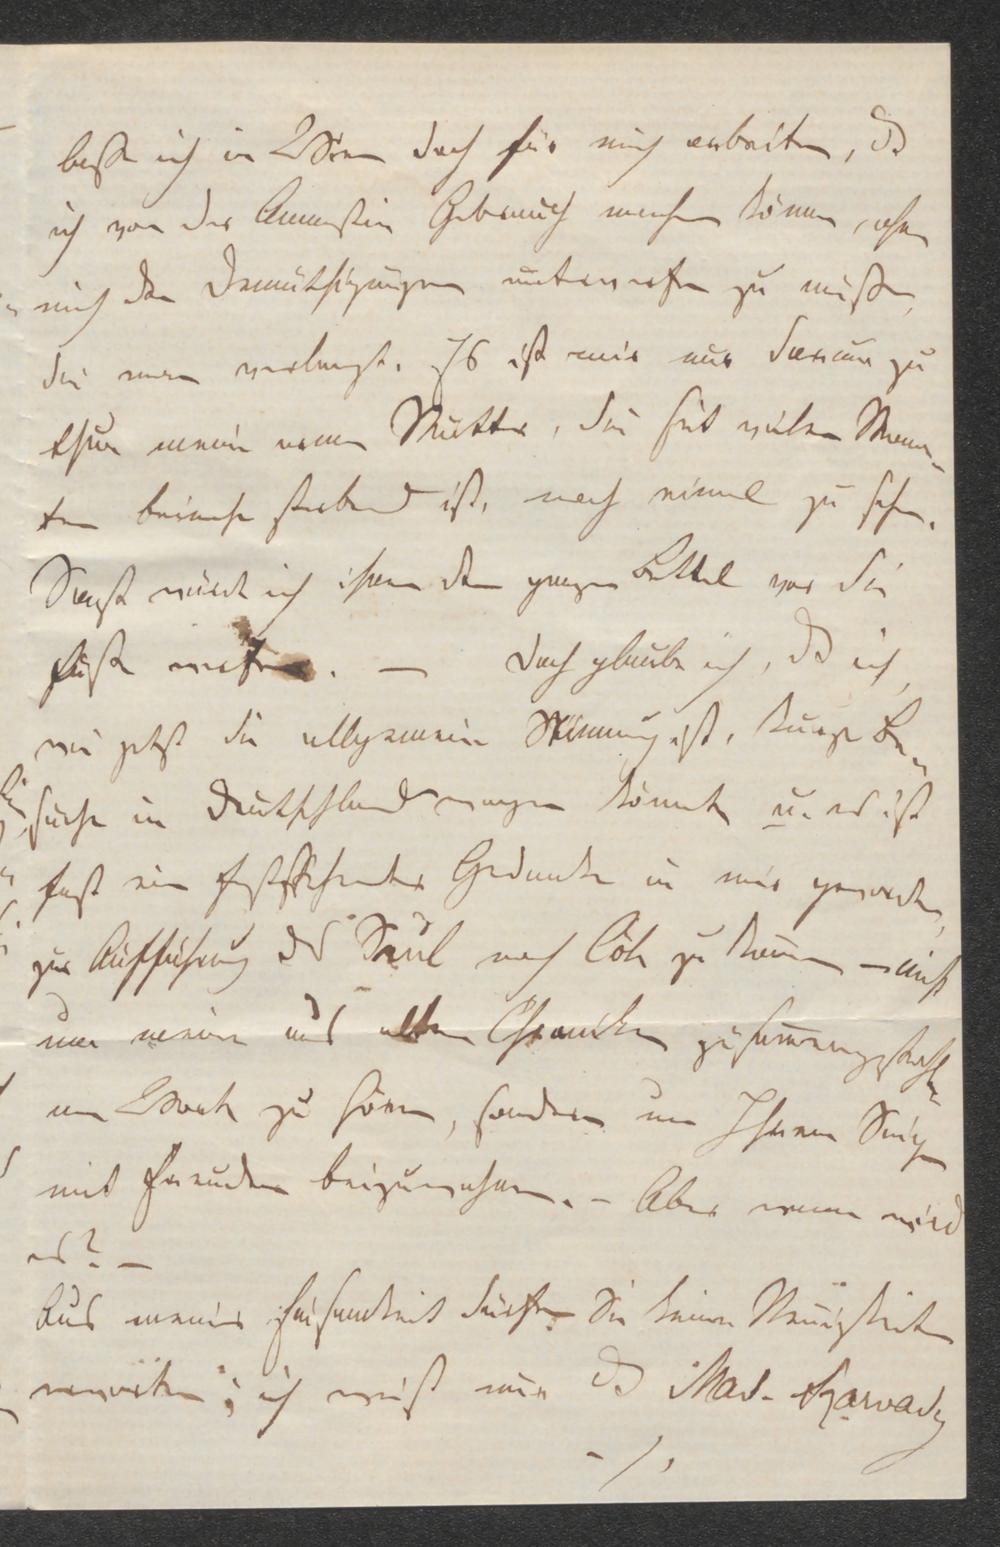 laße ich in Wien doch für mich arbeiten, daß
ich von der Amnestie Gebrauch machen könne, ohne
mich den Demüthigungen unterwerfen zu müßen,
die man verlangt. Es ist mir nur darum zu
thun meine arme Mutter, die seit vielen Mona-
ten beinahe sterbend ist, noch einmal zu sehen.
Sonst würde ich ihnen den ganzen Bettel vor die
Füße werfen. — Doch glaube ich, daß ich,
wie jetzt die allgemeine Stimmung ist, kurze Be-
suche in Deutschland wagen könnte u. es ist
fast ein feststehender Gedanke in mir geworden,
zur Aufführung des Saul nach Cöln zu kommen — nicht
um meine aus alten Chroniken zusammengestohle-
nen Worte zu hören, sondern um Ihrem Siege
mit Freuden beizuwohnen. – Aber wann wird
es? —
Aus meiner Einsamkeit dürfen Sie keine Neuigkeiten
erwarten; ich weiß nur daß Mad. Szarvady
./.